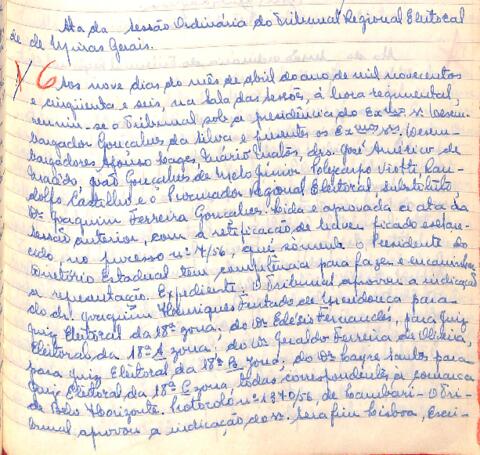 Ata da sessão Ordinária do Tribunal Regional Eleitoral
de Minas Gerais.
6 Aos nove dias do mês de abril do ano de mil novecentos
e cinqüenta e seis, na sala das sessões, à hora regimental,
reuniu-se o Tribunal sob a presidência do Exmo. Sr. Desem-
bargador Gonçalves da Silva e presentes os Exmos. Srs. Desem-
bargadores Afonso Lages, Mário Matos, drs. José Américo de
Macêdo, João Gonçalves de Melo Junior, Policarpo Viotti, Ran-
dolfo e o Procurador Regional Eleitoral, substituto,
Dr. Joaquim Ferreira Gonçalves. Lida e aprovada a ata da
sessão anterior, com a retificação de haver ficado esclare-
cido, no processo nº 7/56, que sòmente o Presidente do
Diretório Estadual tem competência para fazer e encaminhar
a representação. Expediente. O Tribunal aprovou a indicação
do dr. Joaquim Henriques Furtado de Mendonça para
Juiz Eleitoral da 18ª zona; do Dr. Edésio Fernandes, para Juiz
Eleitoral da 18ª A zona; do Dr. Geraldo Ferreira de Oliveira,
para Juiz Eleitoral da 18ª B zona; do Dr. Santos para
Juiz Eleitoral da 18ª C zona, todas correspondentes à comarca
de Belo Horizonte. Protocolo nº 1370/56, de Cambuí - O Tri-
bunal aprovou a indicação do sr. Serafim Lisboa, Escri-